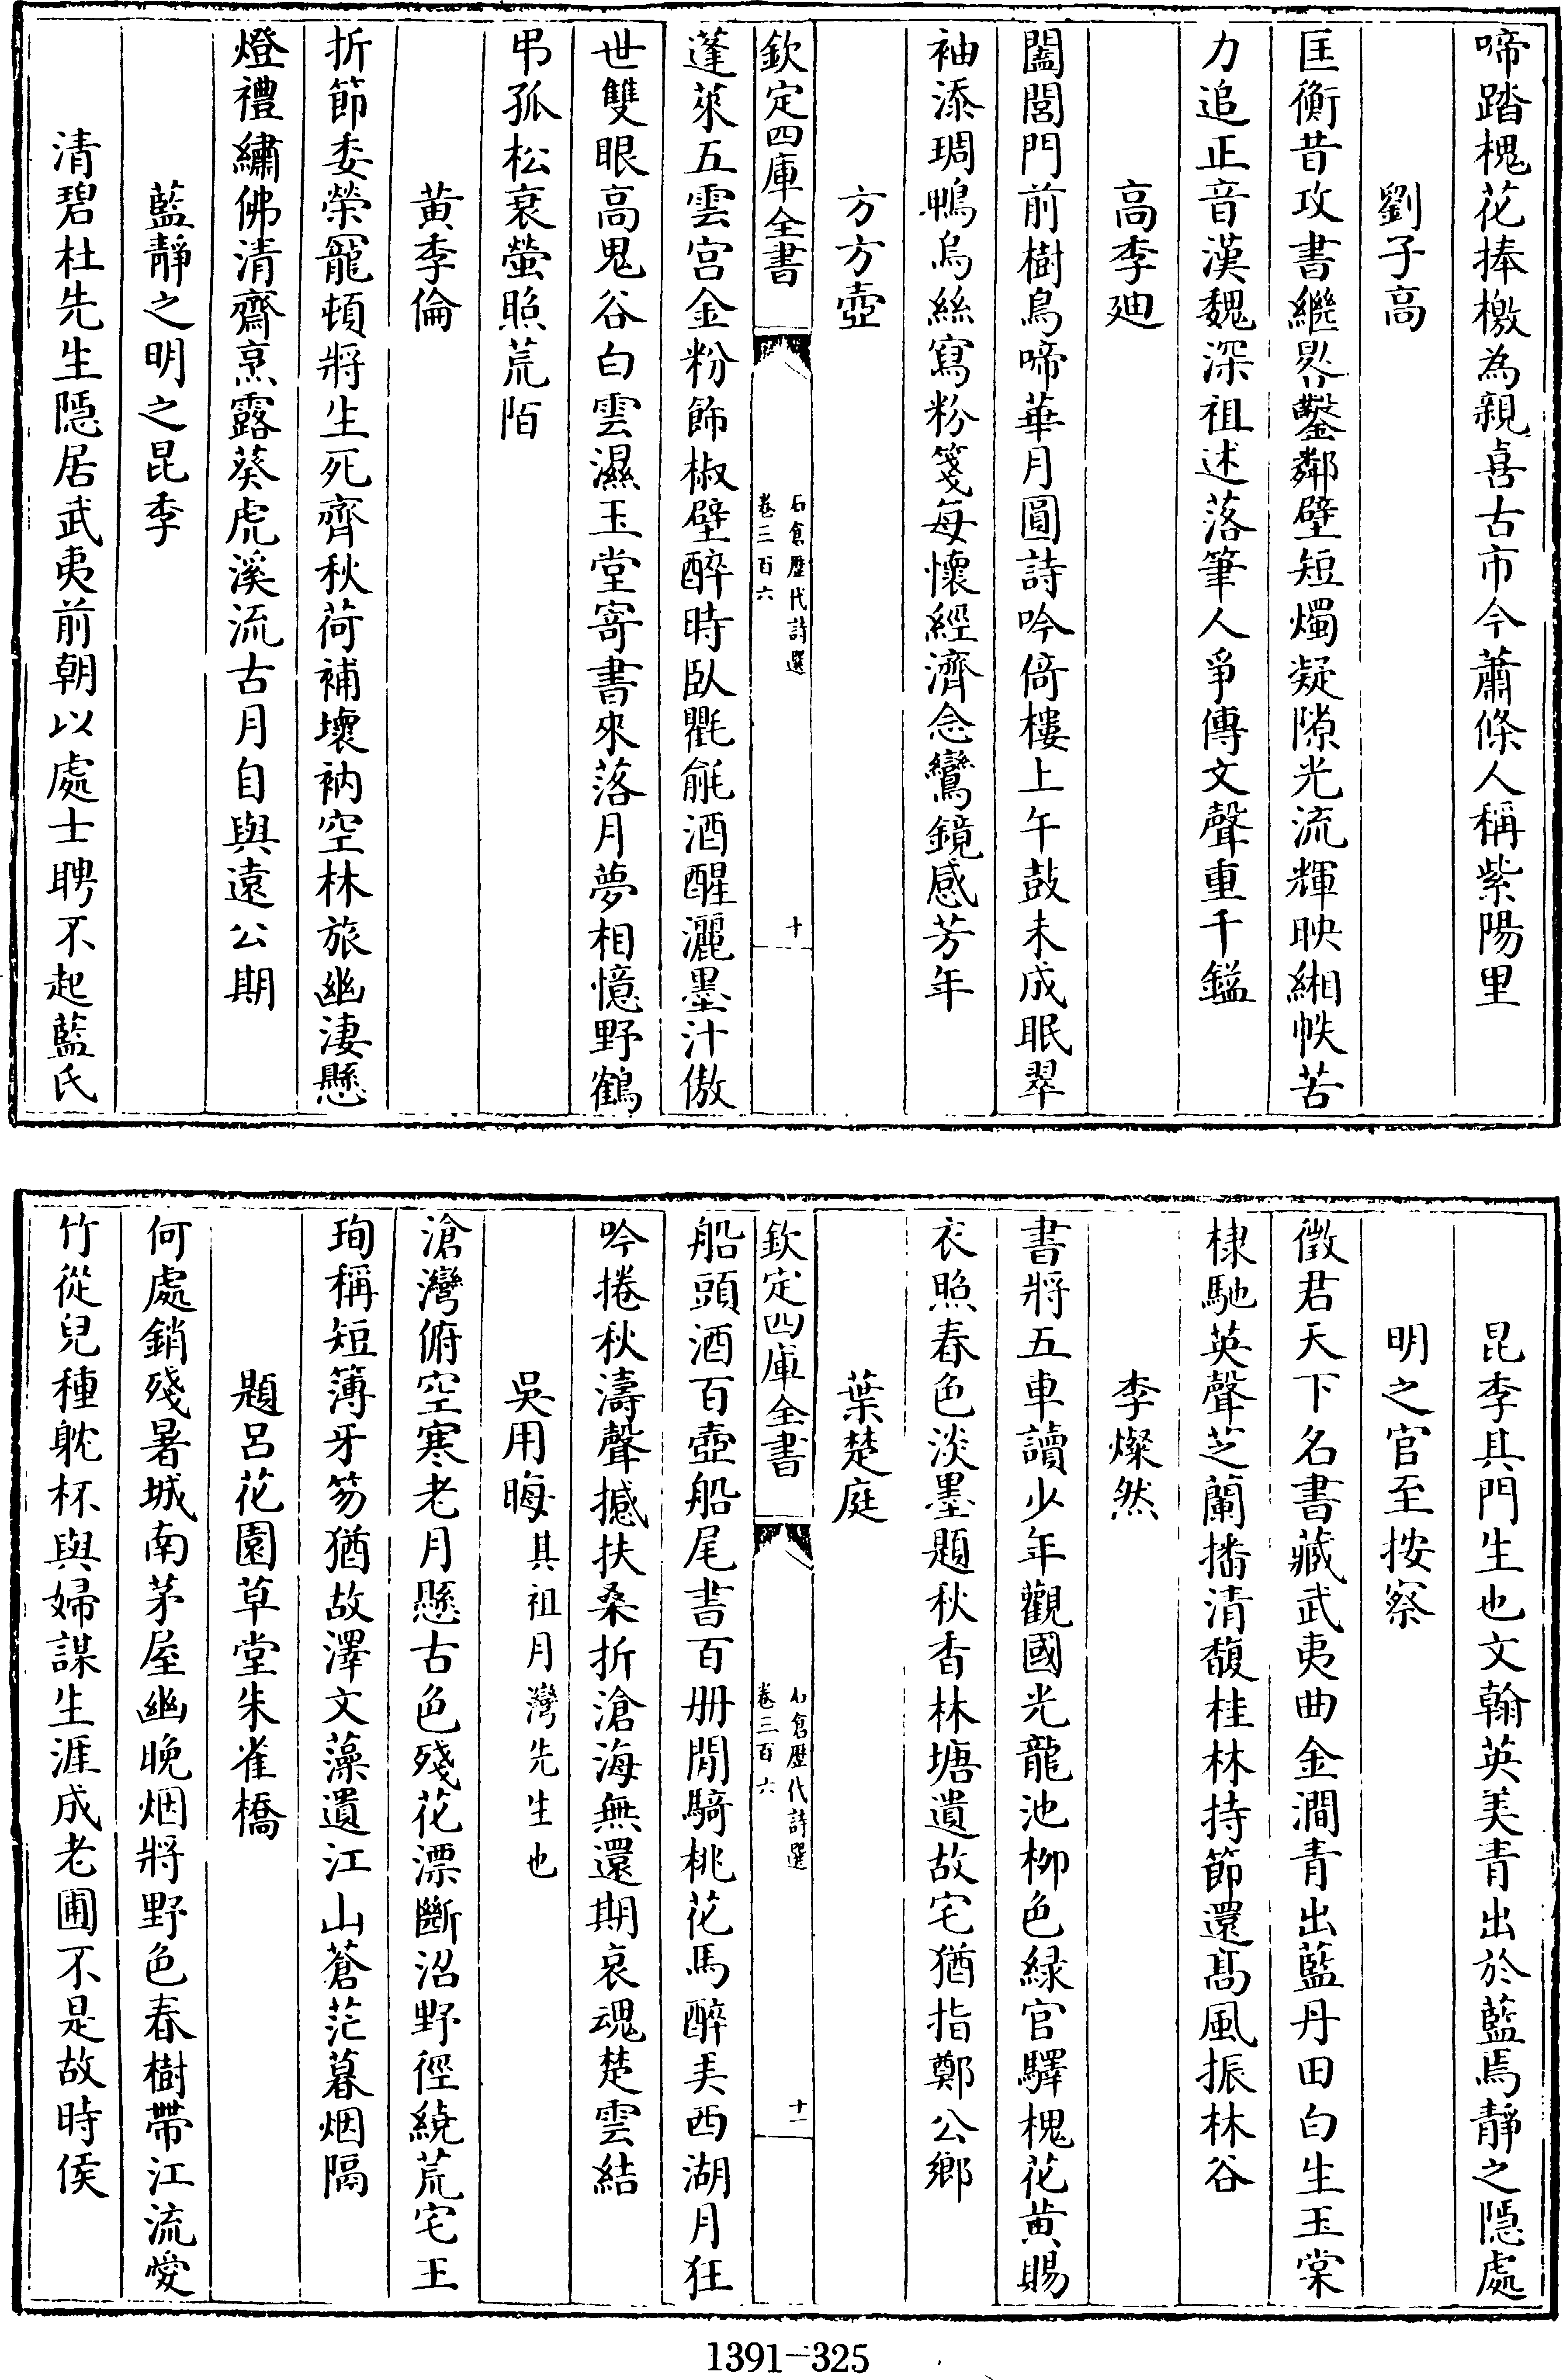 啼踏槐花捧檄為親喜古市今蕭條人稱紫陽里
劉子高
匡衡昔攻書繼晷鑿鄰壁短燭凝隙光流輝映緗帙苦
力追正音漢魏深祖述落筆人爭傳文聲重千鎰
高季迪
闔閭門前樹鳥啼華月圓詩吟倚樓上午鼓未成眠翠
袖添琱鴨烏絲寫粉箋每懷經濟念鸞鏡感芳年
方方壺
欽定四庫全書
石倉歷代詩選
卷三百六
十
蓬萊五雲宫金粉飾椒壁醉時臥氍毹酒醒灑墨汁傲
世雙眼高鬼谷白雲濕玉堂寄書來落月夢相憶野鶴
弔孤松衰螢照荒陌
黄季倫
折節委榮寵頓將生死齊秋荷補壞衲空林旅幽淒懸
燈禮繡佛清齋烹露葵虎溪流古月自與遠公期
藍靜之明之昆季
清碧杜先生隠居武夷前朝以處士聘不起藍氏
昆季其門生也文翰英美青出於藍焉靜之隠處
明之官至按察
徵君天下名書藏武夷曲金澗青出藍丹田白生玉棠
棣馳英聲芝蘭播清馥桂林持節還髙風振林谷
李燦然
書將五車讀少年觀國光龍池栁色緑官驛槐花黄賜
衣照春色淡墨題秋香林塘遺故宅猶指鄭公鄉
葉楚庭
欽定四庫全書
石倉歷代詩選
卷三百六
十一
船頭酒百壺船尾書百册閒騎桃花馬醉美西湖月狂
吟捲秋濤聲撼扶桑折滄海無還期哀魂楚雲結
吳用晦其祖月灣先生也
滄灣俯空寒老月懸古色殘花漂斷沼野徑繞荒宅王
珣稱短簿牙笏猶故澤文藻遺江山蒼茫暮烟隔
題呂花園草堂朱雀橋
何處銷殘暑城南茅屋幽晩烟將野色春樹帶江流愛
竹從兒種躭杯與婦謀生涯成老圃不是故時侯
1391-325